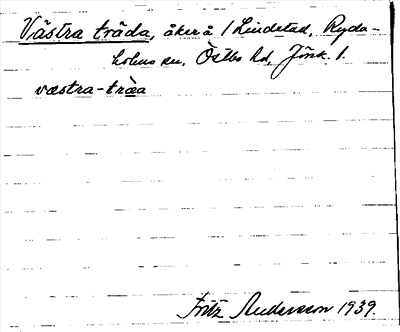 Västra träda, åker å 1 Lindstad, Ryda-
holms sn, Östbo hd, Jönk. l.
væstra-træa
Fritz Andersson 1939.